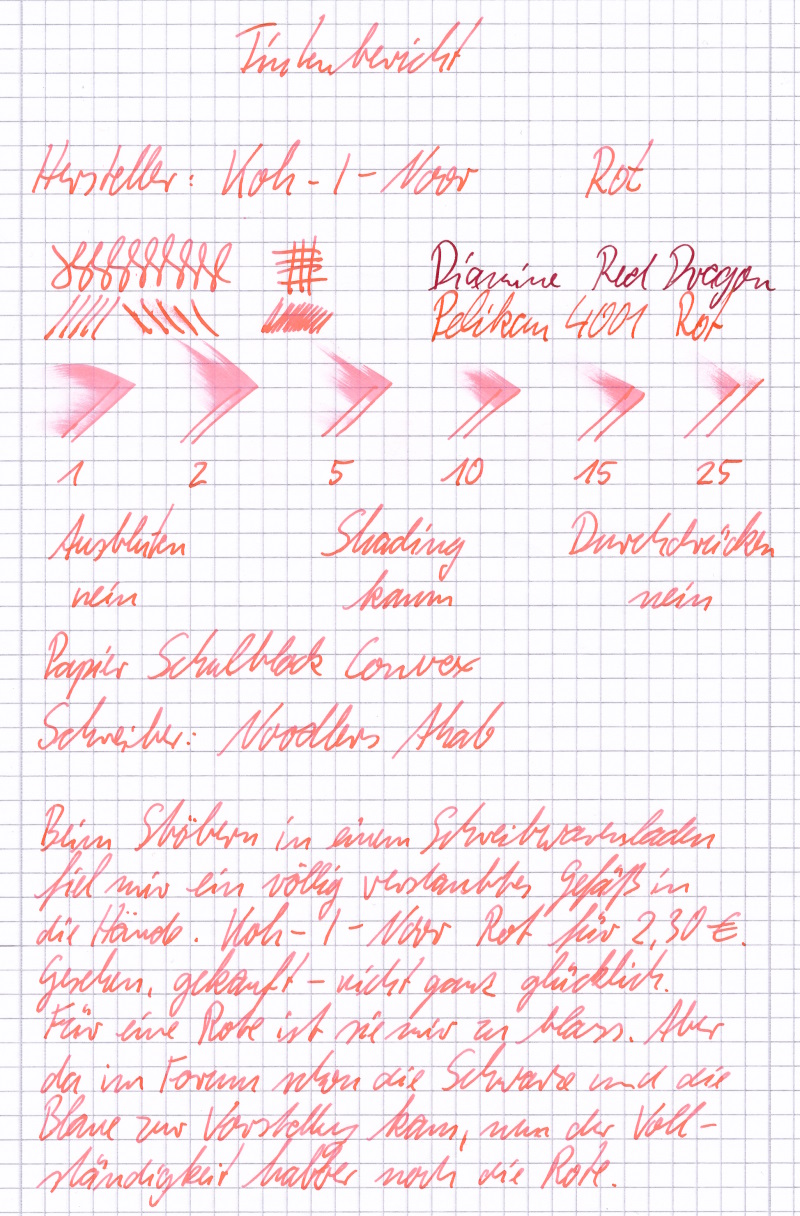 Tintenbericht
Hersteller: Koh-I-Noor Rot
Diamine Red Dragon
Pelikan 4001 Rot
1 2 5 10 15 25
Ausbluten Shading Durchdrücken
nein kaum nein
Papier Schulblock Convex
Schreiber: Noodlers Ahab
Beim Stöbern in einem Schreibwarenladen
fiel mir ein völlig verstaubtes Gefäß in
die Hände. Koh-I-Noor Rot für 2,30 €.
Gesehen, gekauft - nicht ganz glücklich.
Für eine Rote ist sie mir zu blass. Aber
da im Forum schon die Schwarze und die
Blaue zur Vorstellung kam, nun der Voll-
ständigkeit halber noch die Rote.